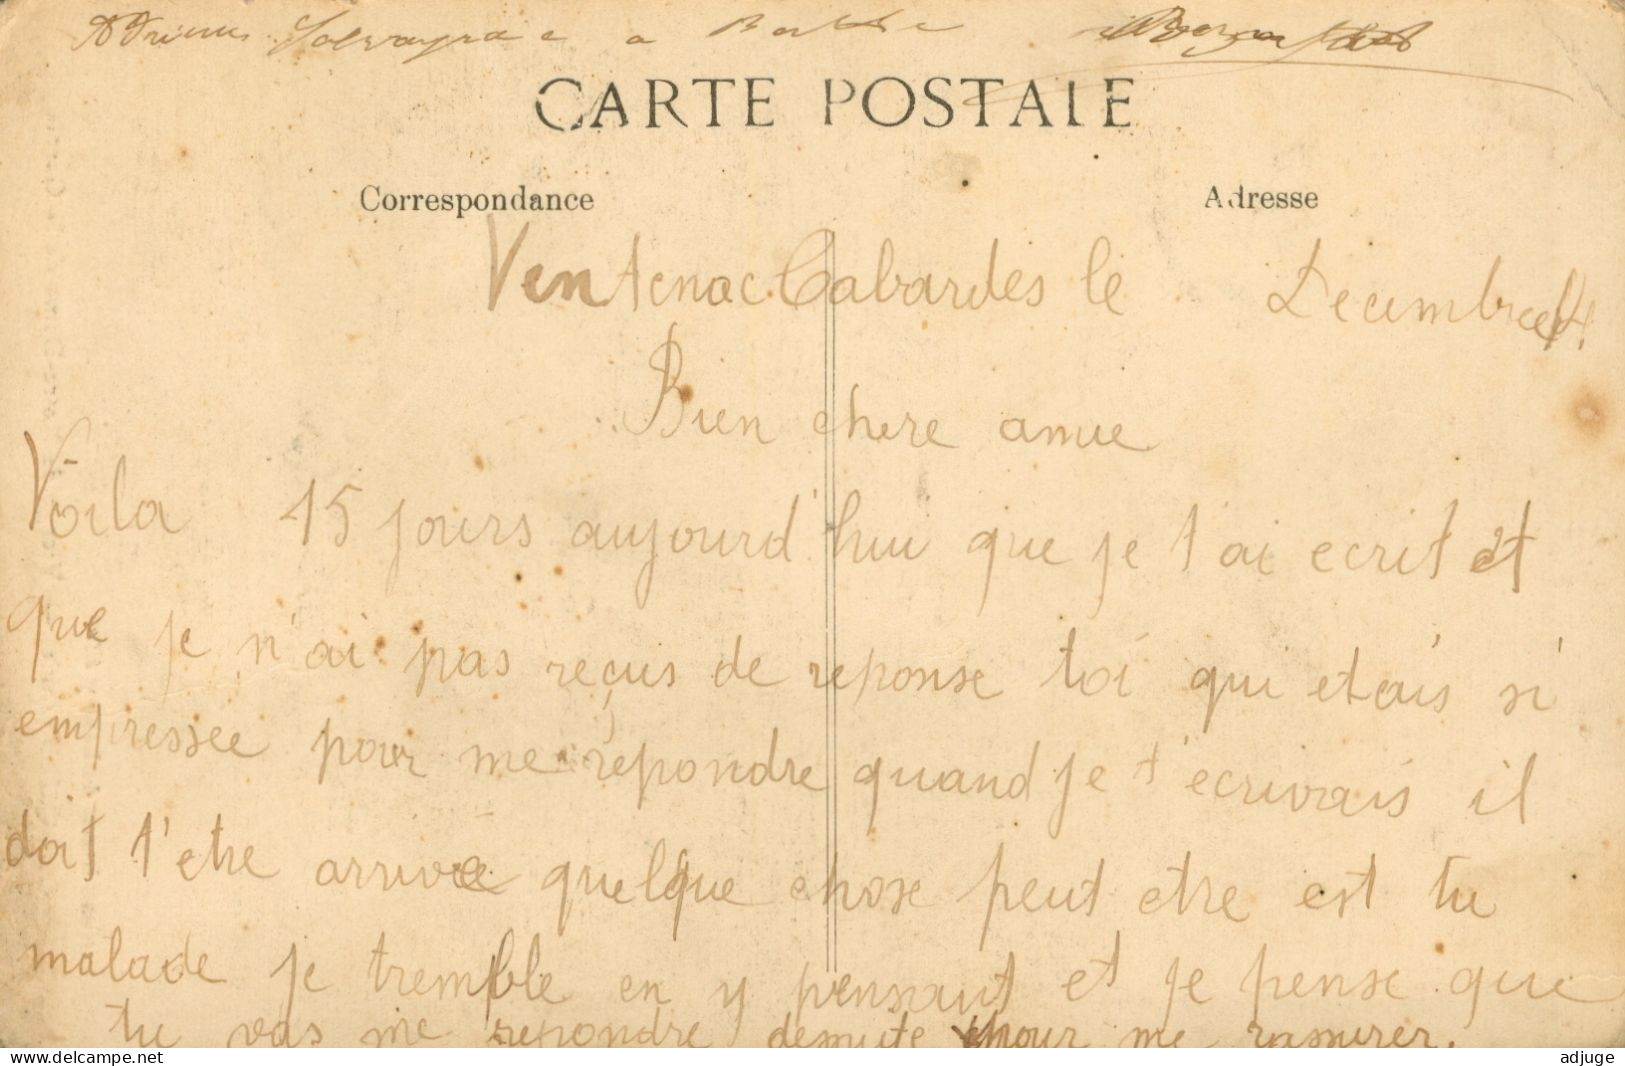 CARTE POSTALE
Correspondance
Adresse
Ventenac Cabardes le Decembre
Bien chere amie
Voila 15 jours aujourd'hui que je t'ai ecrit et
que je n'ai pas reçus de reponse toi qui etais si
empressee pour me repondre quand je t'ecrivais il
doit t'etre arrivée quelque chose peut etre est tu
malade je tremble en y pensant et je pense que
tu vas me repondre pour me rassurer.
delcampe.net
adjuge